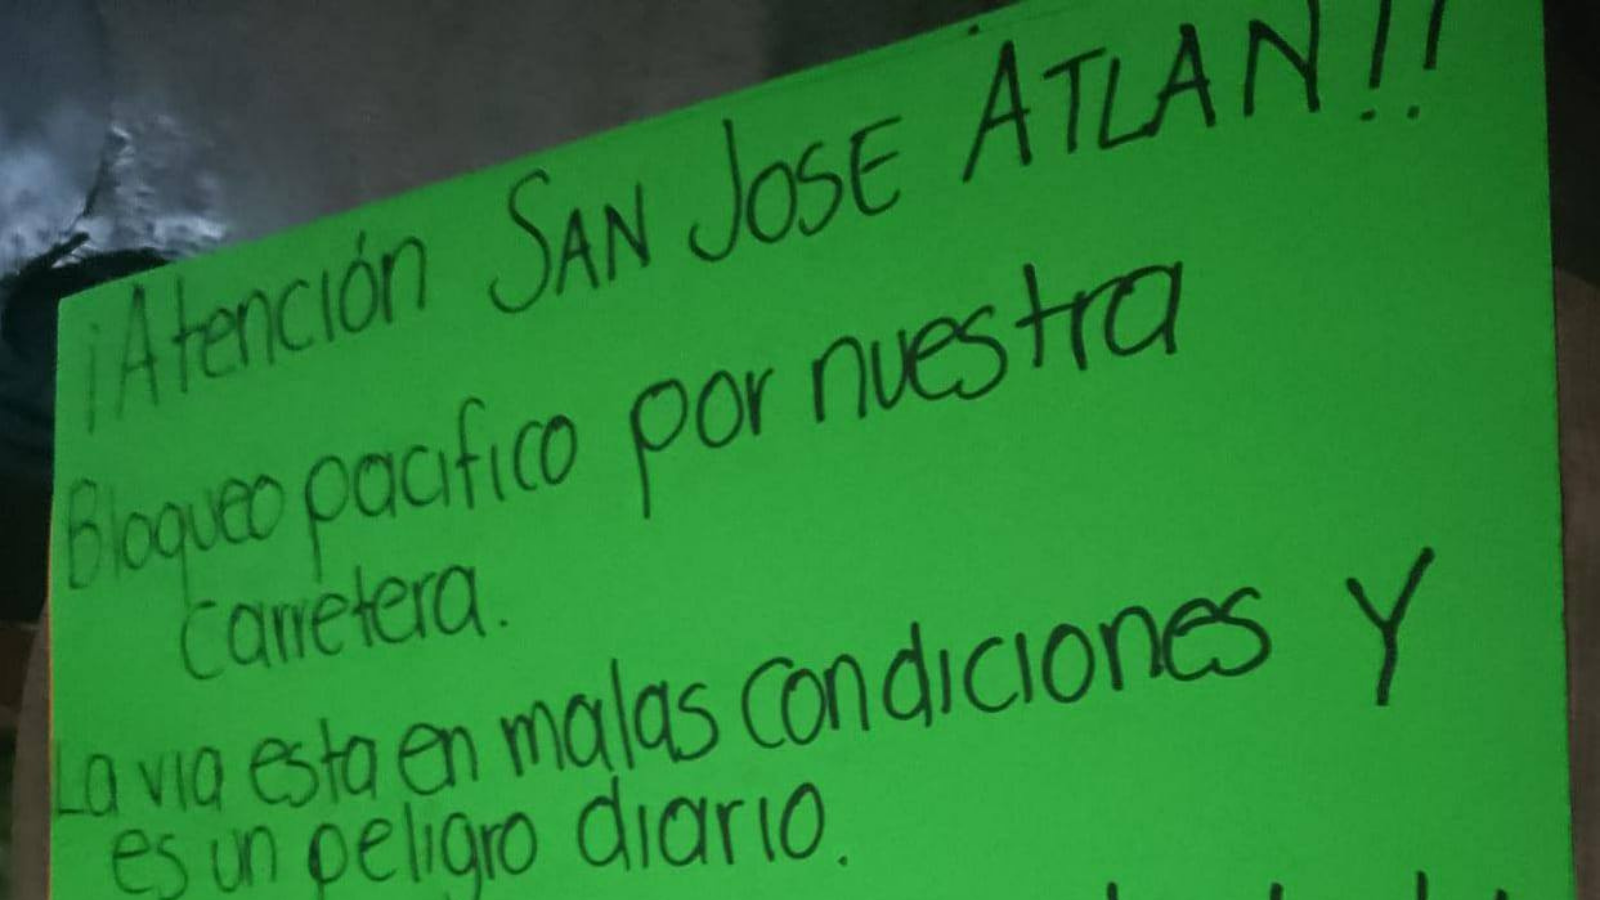 ¡Atención SAN JOSE ATLAN!!
Bloqueo pacifico por nuestra
carretera.
La via esta en malas condiciones Y
es un peligro diario.